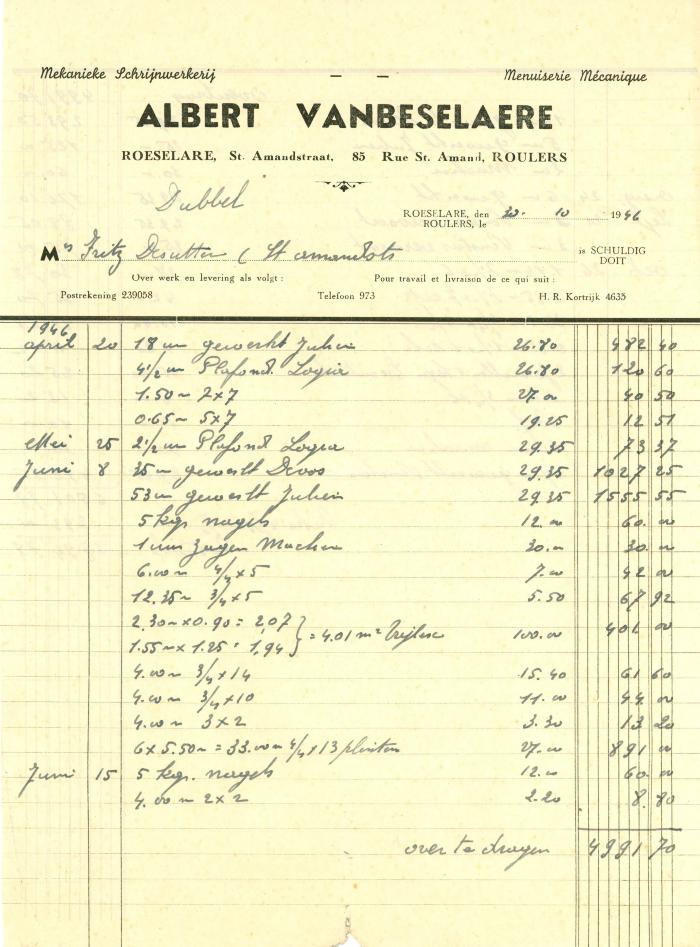 Mekanieke Schrijnwerkerij — — Menuiserie Mécanique
ALBERT VANBESELAERE
ROESELARE, St. Amandstraat, 85 Rue St. Amand, ROULERS
Dubbel
ROESELARE, den 30. 10 1946
ROULERS, le
Mr Fritz Desutter ( St amandstr is SCHULDIG
DOIT
Over werk en levering als volgt : Pour travail et livraison de ce qui suit :
Postrekening 239058 Telefoon 973 H. R. Kortrijk 4635
1946
april 20 18 uu gewerkt Julien 26.80 482 40
4 1/2 uu Plafond Logia 26.80 120 60
1.50 m 7x7 27.00 40 50
0.65 m 5x7 19.25 12 51
Mei 25 2 1/2 uu Plafond Logia 29.35 73 37
Juni 8 35 uu gewerkt Devos 29.35 1027 25
53 uu gewerkt Julien 29.35 1555 55
5 kgr nagels 12.00 60.00
1 uur zagen Machien 30.00 30.00
6.00 m 4/4 x 5 7.00 42 00
12.35 m 3/4 x 5 5.50 67 92
2.30 m x 0.90 = 2,07
1.55 m x 1.25 = 1,94 } = 4.01 m² 100.00 401 00
4.00 m 3/4 x 14 15.40 61 60
4.00 m 3/4 x 10 11.00 44 00
4.00 m 3 x 2 3.30 13 20
6 x 5.50 m = 33.00 m 4/4 x 13 plinten 27.00 891 00
Juni 15 5 kgr. nagels 12.00 60.00
4.00 m 2 x 2 2.20 8.80
over te dragen 4991 70